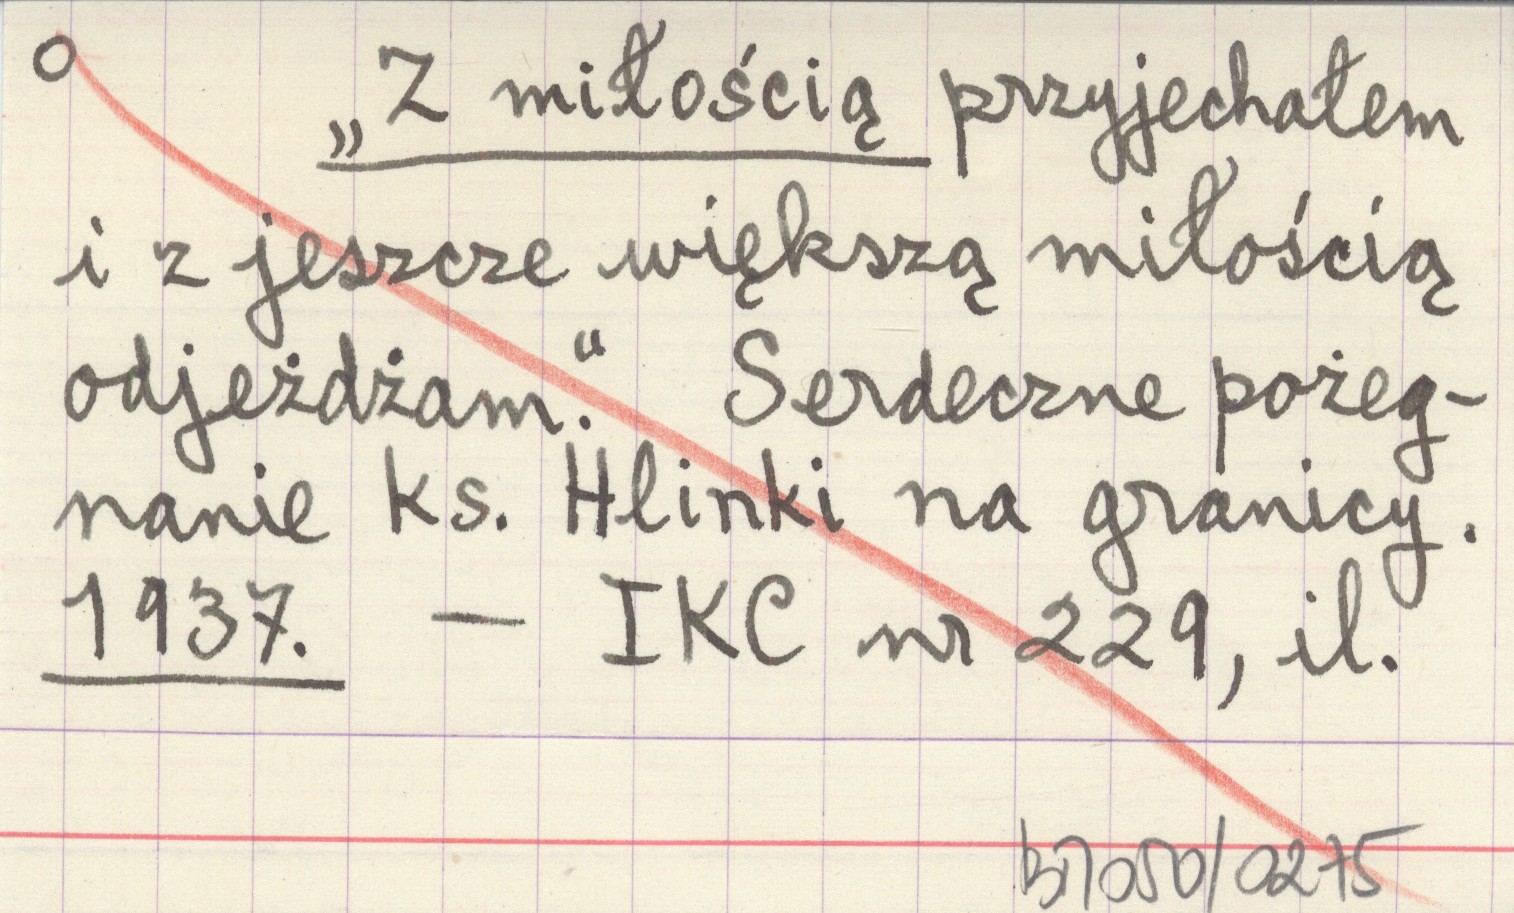 „Z miłością przyjechałem
i z jeszcze większą miłością
odjeżdżam.“ Serdeczne pożeg-
nanie ks. Hlinki na granicy.
1937. — IKC nr 229, il.
b17050/0275